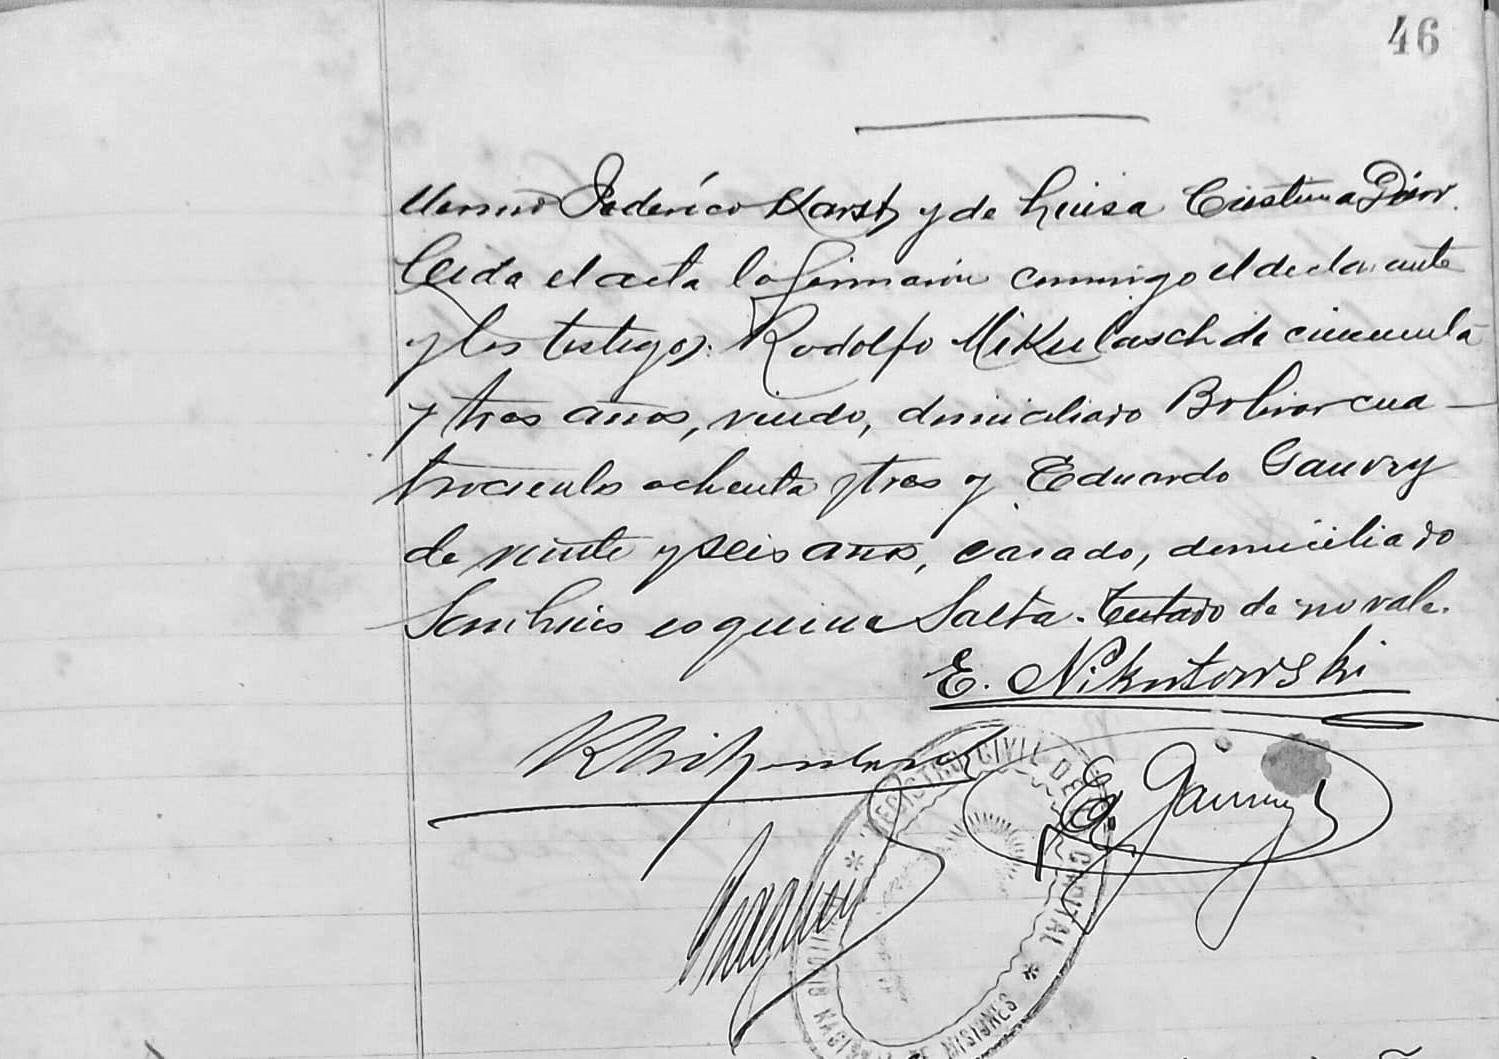 46
Federico Karst y de Luisa Cristina
Leida el acta la firmaron conmigo el declarante
y los testigos: Rodolfo Mikulasch de cincuenta
y tres años, viudo, domiciliado Bolivar cua-
trocientos ochenta y tres y Eduardo Gauvry
de veinte y seis años, casado, domiciliado
San Luis esquina Salta. Testado de no vale.
E. Nikutowski
E. Gauvry
REGISTRO CIVIL DE CAPITAL
NACIONAL DE MISIONES